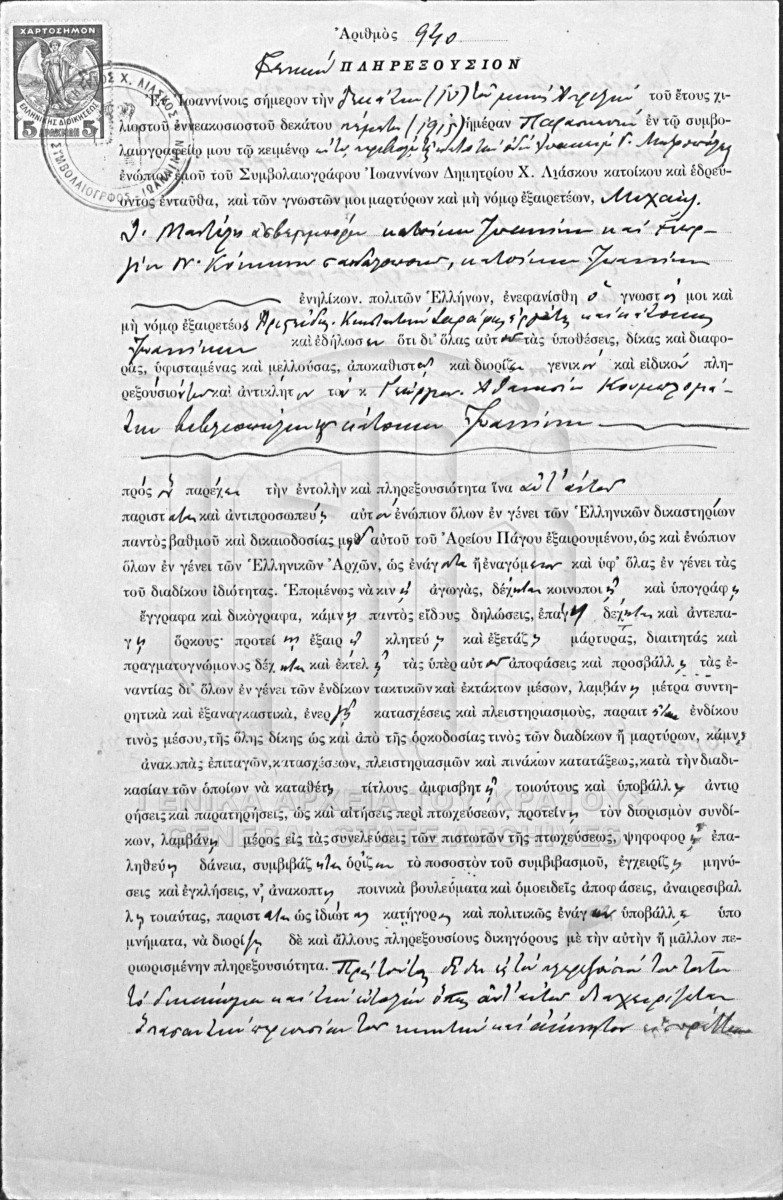 ΧΑΡΤΟΣΗΜΟΝ
ΕΛΛΗΝΙΚΗΣ ΔΙΟΙΚΗΣΕΩΣ
5 ΔΡΑΧΜΩΝ 5
Χ. ΛΙΑΣΚΟΣ
ΣΥΜΒΟΛΑΙΟΓΡΦΟΣ - ΙΩΑΝΝΙΝΩΝ
Ἀριθμὸς 940
Γενικὸν ΠΛΗΡΕΞΟΥΣΙΟΝ
Ἐν Ἰωαννίνοις σήμερον τὴν δεκάτην (10) τοῦ μηνὸς Ἀπριλίου τοῦ ἔτους χι-
λιοστοῦ ἐννεακοσιοστοῦ δεκάτου πέμπτου (1915) ἡμέραν Παρασκευὴν ἐν τῷ συμβο-
λαιογραφείῳ μου τῷ κειμένῳ
ἐνώπιον ἐμοῦ τοῦ Συμβολαιογράφου Ἰωαννίνων Δημητρίου Χ. Λιάσκου κατοίκου καὶ ἑδρεύ-
οντος ἐνταῦθα, καὶ τῶν γνωστῶν μοι μαρτύρων καὶ μὴ νόμῳ ἐξαιρετέων, Μιχαὴλ
κατοίκου Ἰωαννίνων καὶ Γεωρ-
γίου Ν. κατοίκου Ἰωαννίνων
ἐνηλίκων. πολιτῶν Ἑλλήνων, ἐνεφανίσθη ὁ γνωστός μοι καὶ
μὴ νόμῳ ἐξαιρετέος Ἀριστείδης Κωνσταντίνου ἐργάτης καὶ κάτοικος
Ἰωαννίνων καὶ ἐδήλωσεν ὅτι δι' ὅλας αὐτοῦ τὰς ὑποθέσεις, δίκας καὶ διαφο-
ράς, ὑφισταμένας καὶ μελλούσας, ἀποκαθιστᾷ καὶ διορίζει γενικὸν καὶ εἰδικὸν πλη-
ρεξούσιόν του καὶ ἀντίκλητον τὸν κ. Γεώργιον Ἀθανασίου
βιβλιοπώλην κάτοικον Ἰωαννίνων
πρὸς ὃν παρέχει τὴν ἐντολὴν καὶ πληρεξουσιότητα ἵνα ἀντ' αὐτοῦ
παρίσταται καὶ ἀντιπροσωπεύῃ αὐτὸν ἐνώπιον ὅλων ἐν γένει τῶν Ἑλληνικῶν δικαστηρίων
παντὸς βαθμοῦ καὶ δικαιοδοσίας μηδ' αὐτοῦ τοῦ Ἀρείου Πάγου ἐξαιρουμένου, ὡς καὶ ἐνώπιον
ὅλων ἐν γένει τῶν Ἑλληνικῶν Ἀρχῶν, ὡς ἐνάγοντα ἢ ἐναγόμενον καὶ ὑφ' ὅλας ἐν γένει τὰς
τοῦ διαδίκου ἰδιότητας. Ἑπομένως νὰ κινῇ ἀγωγάς, δέχηται κοινοποιῇ καὶ ὑπογράφῃ
ἔγγραφα καὶ δικόγραφα, κάμνῃ παντὸς εἴδους δηλώσεις, ἐπάγῃ δέχηται καὶ ἀντεπά-
γῃ ὅρκους· προτείνῃ ἐξαιρῇ κλητεύῃ καὶ ἐξετάζῃ μάρτυρας, διαιτητὰς καὶ
πραγματογνώμονας δέχηται καὶ ἐκτελῇ τὰς ὑπὲρ αὐτοῦ ἀποφάσεις καὶ προσβάλλῃ τὰς ἐ-
ναντίας δι' ὅλων ἐν γένει τῶν ἐνδίκων τακτικῶν καὶ ἐκτάκτων μέσων, λαμβάνῃ μέτρα συντη-
ρητικὰ καὶ ἐξαναγκαστικά, ἐνεργῇ κατασχέσεις καὶ πλειστηριασμούς, παραιτῆται ἐνδίκου
τινὸς μέσου, τῆς ὅλης δίκης ὡς καὶ ἀπὸ τῆς ὁρκοδοσίας τινὸς τῶν διαδίκων ἢ μαρτύρων, κάμνῃ
ἀνακοπὰς ἐπιταγῶν, κατασχέσεων, πλειστηριασμῶν καὶ πινάκων κατατάξεως, κατὰ τὴν διαδι-
κασίαν τῶν ὁποίων νὰ καταθέτῃ τίτλους ἀμφισβητῇ τοιούτους καὶ ὑποβάλλῃ ἀντιρ
ρήσεις καὶ παρατηρήσεις, ὡς καὶ αἰτήσεις περὶ πτωχεύσεων, προτείνῃ τὸν διορισμὸν συνδί-
κων, λαμβάνῃ μέρος εἰς τὰς συνελεύσεις τῶν πιστωτῶν τῆς πτωχεύσεως, ψηφοφορῇ ἐπα-
ληθεύῃ δάνεια, συμβιβάζηται ὁρίζων τὸ ποσοστὸν τοῦ συμβιβασμοῦ, ἐγχειρίζῃ μηνύ-
σεις καὶ ἐγκλήσεις, ν' ἀνακόπτῃ ποινικὰ βουλεύματα καὶ ὁμοειδεῖς ἀποφάσεις, ἀναιρεσιβάλ
λῃ τοιαύτας, παρίσταται ὡς ἰδιώτης κατήγορος καὶ πολιτικῶς ἐνάγων ὑποβάλλῃ ὑπο
μνήματα, νὰ διορίζῃ δὲ καὶ ἄλλους πληρεξουσίους δικηγόρους μὲ τὴν αὐτὴν ἢ μᾶλλον πε-
ριωρισμένην πληρεξουσιότητα. Πρὸς τούτοις δίδει εἰς τὸν πληρεξούσιόν του τοῦτον
τὸ δικαίωμα καὶ τὴν ἐντολὴν ὅπως ἀντ' αὐτοῦ διαχειρίζεται
ἅπασαν τὴν περιουσίαν του κινητὴν καὶ ἀκίνητον
ΓΕΝΙΚΑ ΑΡΧΕΙΑ ΤΟΥ ΚΡΑΤΟΥΣ
GENERAL STATE ARCHIVES